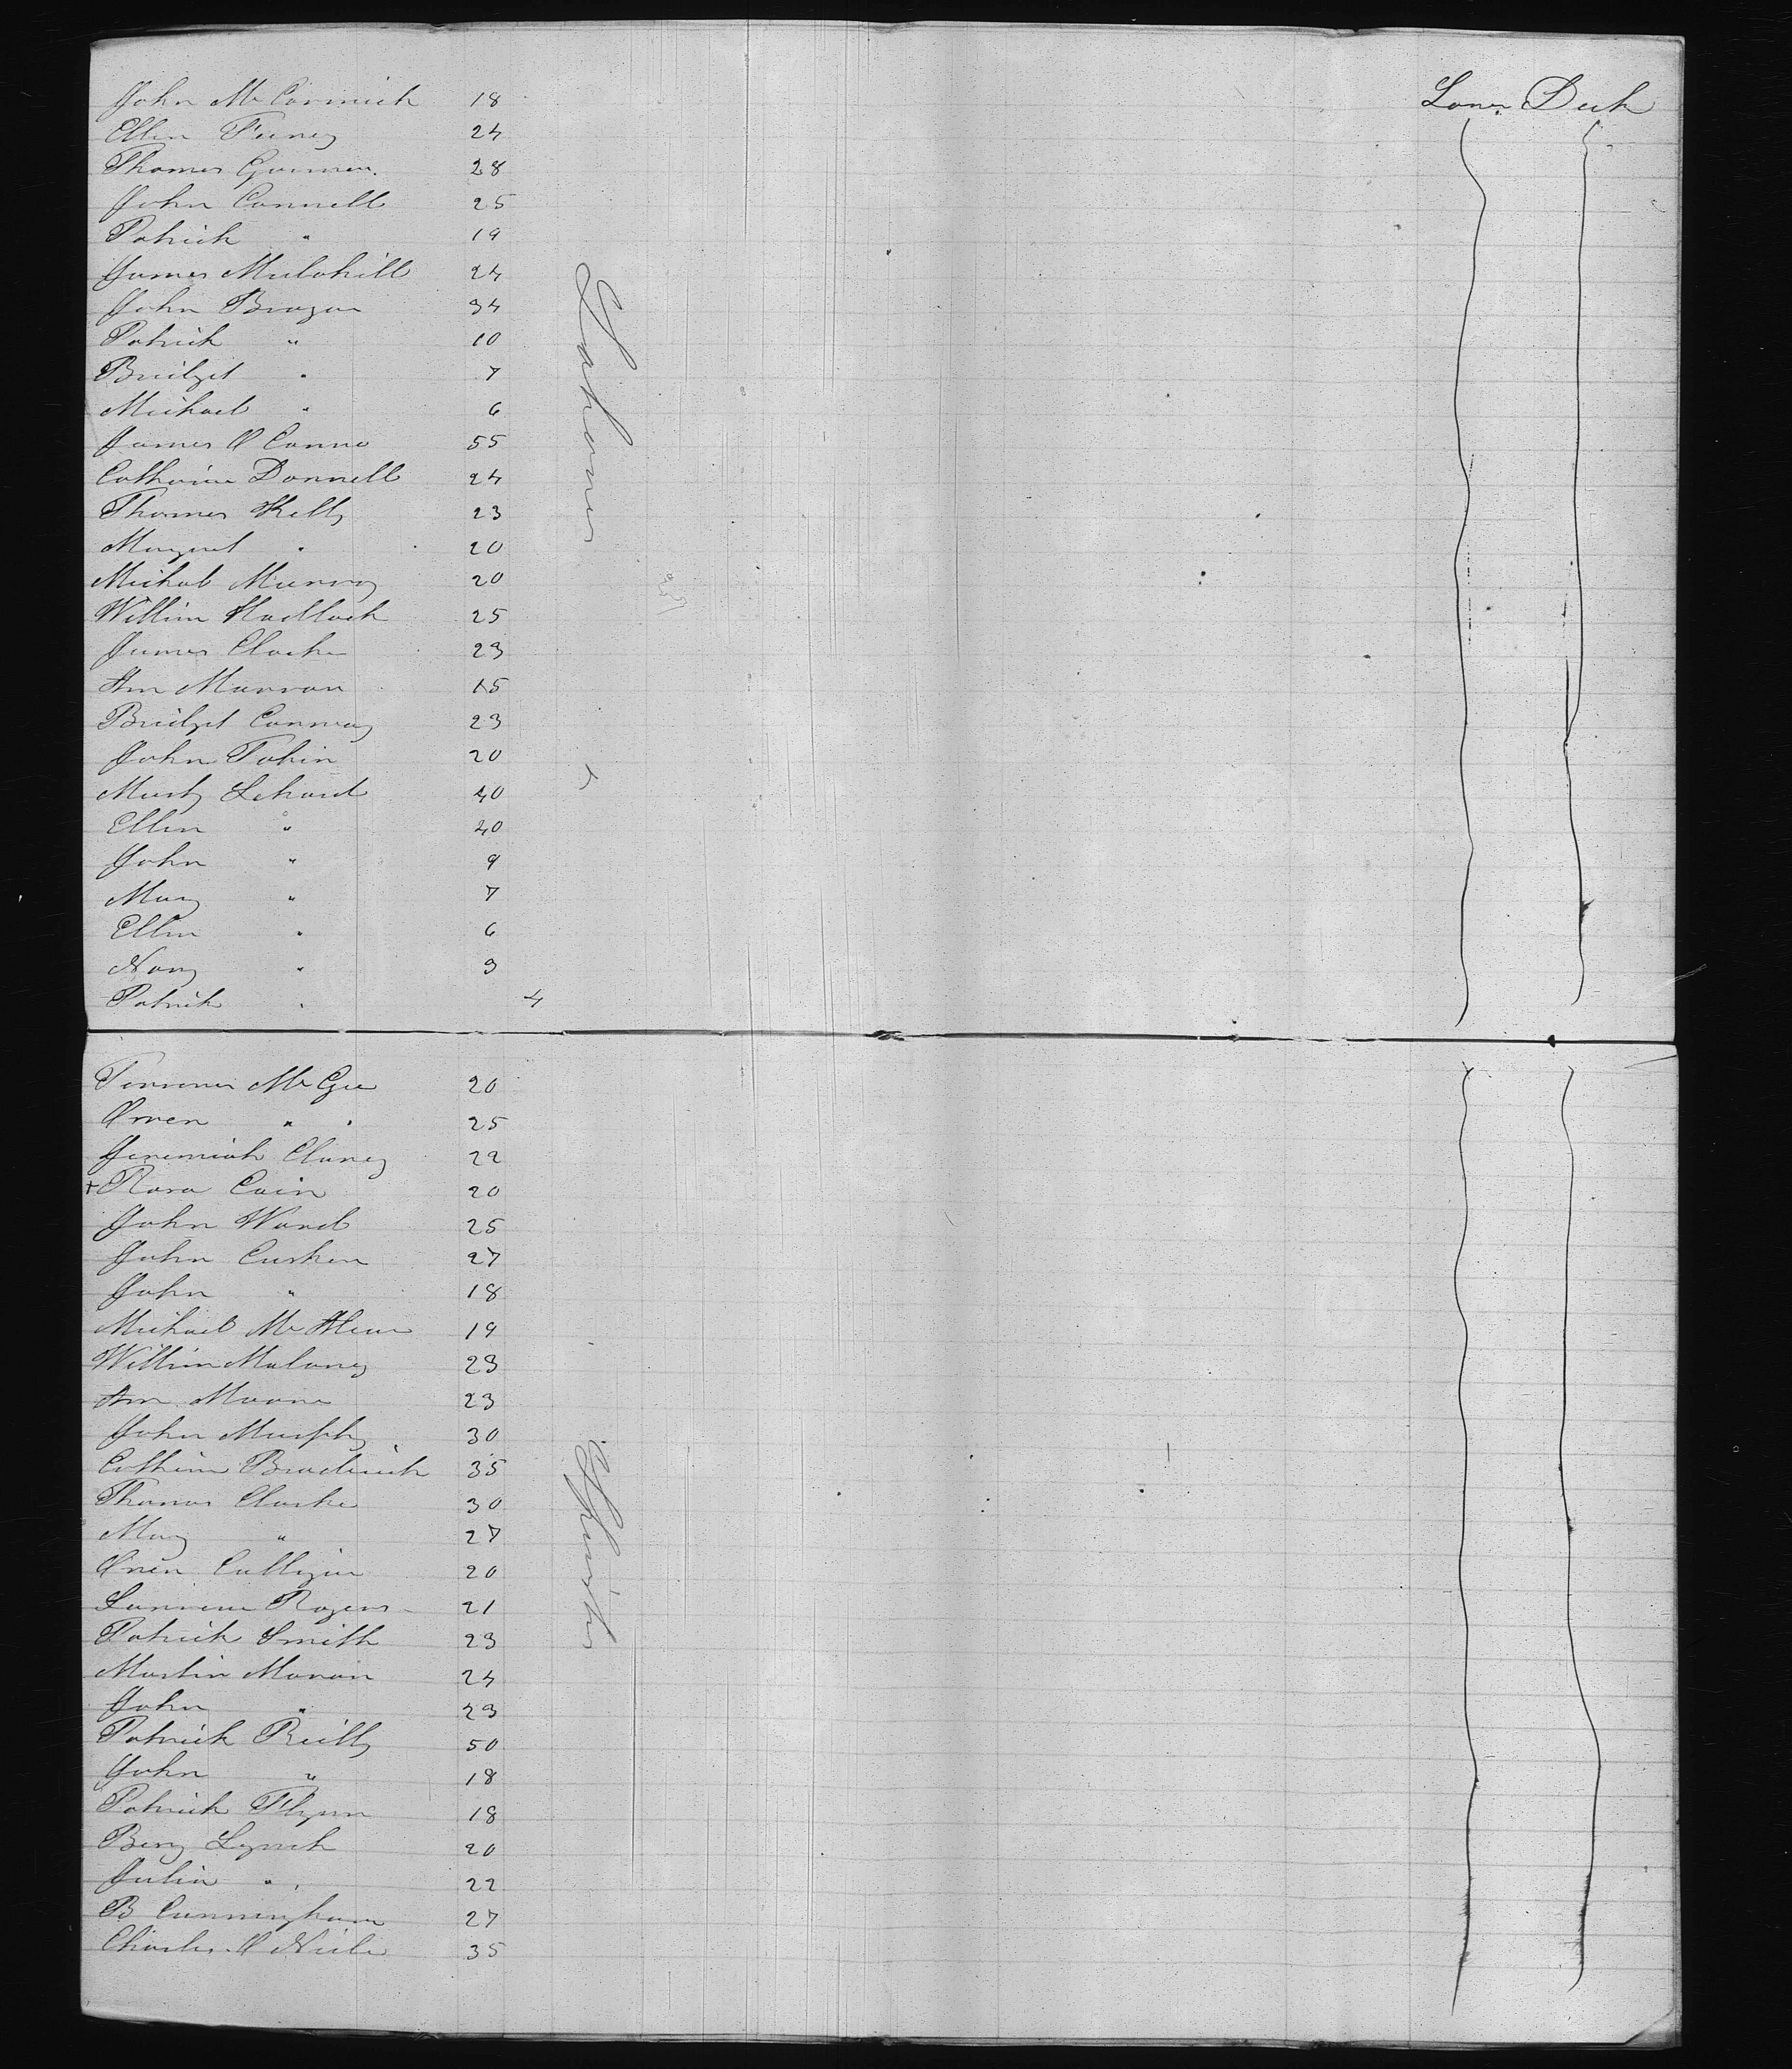 Lower Deck
John Mc Cormick 18
Ellen Feeney 24
Thomas 28
John Connell 25
Patrick " 19
James Mulvhill 24
John Brogan 34
Patrick " 10
Bridget " 7
Michael " 6
James O Conno 55
Catharine Donnell 24
Thomas Kelly 23
Margaret " 20
Michal Murray 20
Willim Hadlock 25
James Clarke 23
Ann Marron 15
Bridget Conway 23
John Tobin 20
40
Ellen " 40
John " 9
Mary " 7
Ellen " 6
" 3
Patrick " 4
Laborers
Mc Gee 20
Owen " " 25
Jeremiah Clancy 22
+ Rosa Cain 20
John Ward 25
John 27
John " 18
Michael Mc 19
Willim Malony 23
Ann Moore 23
John Murphy 30
Broderick 35
Thomas Clarke 30
Mary " 27
Owen Culligan 20
Rogers 21
Patrick Smith 23
Martin Moran 24
John " 23
Patrick Reilly 50
John " 18
Patrick Flynn 18
Lynch 20
Julia " 22
B Cunningham 27
Charles O Niele 35
Spinsters